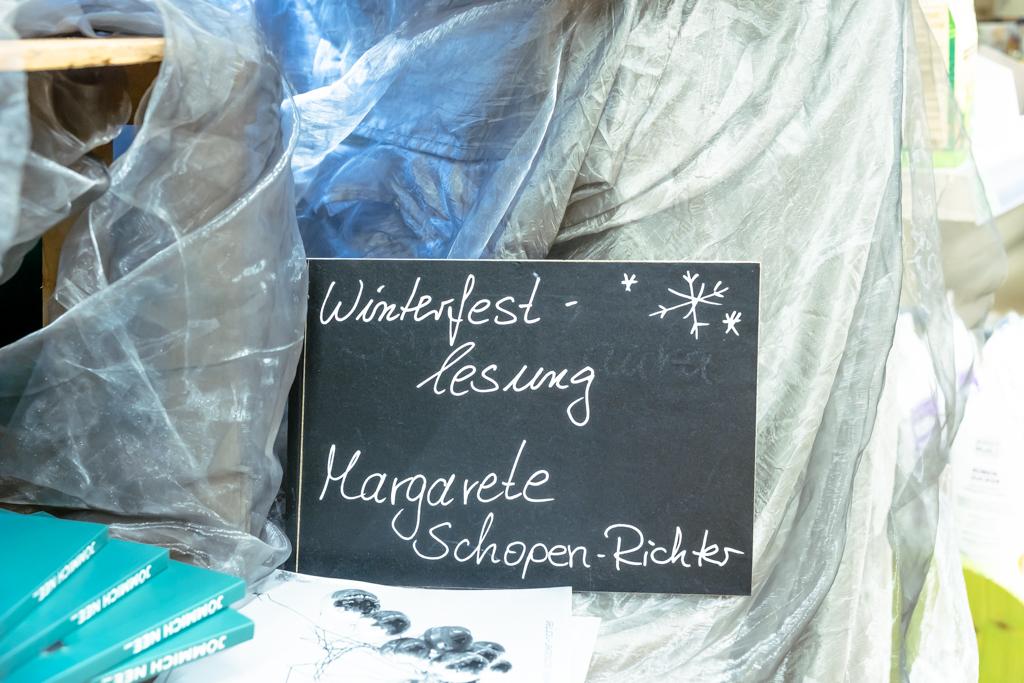 Winterfest -
lesung
Margarete
Schopen-Richter
JOMMICH NEE...
JOMMICH NEE...
JOMMICH NEE...
JOMMICH NEE...